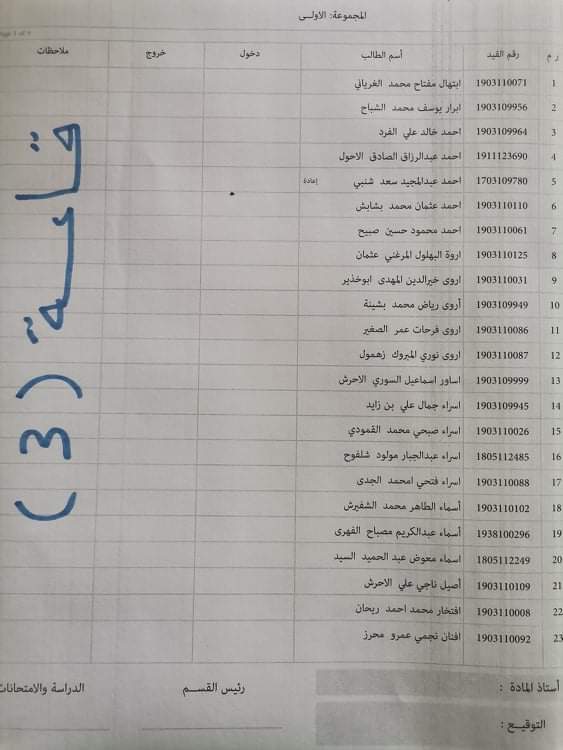 المجموعة: الاولى
ر م رقم القيد أسم الطالب دخول خروج ملاحظات
1 1903110071 ابتهال مفتاح محمد الغرياني
2 1903109956 ابرار يوسف محمد الشباح
3 1903109964 احمد خالد علي الفرد
4 1911123690 احمد عبدالرزاق الصادق الاحول
5 1703109780 احمد عبدالمجيد سعد شنبي إعادة
6 1903110110 احمد عثمان محمد بشابش
7 1903110061 احمد محمود حسين صبيح
8 1903110125 اروة البهلول المرغني عثمان
9 1903110031 اروى خيرالدين المهدى ابوخذير
10 1903109949 أروى رياض محمد بشينة
11 1903110086 اروى فرحات عمر الصغير
12 1903110087 اروى نوري المبروك زهمول
13 1903109999 اساور اسماعيل السوري الاحرش
14 1903109945 اسراء جمال علي بن زايد
15 1903110026 اسراء صبحي محمد القمودي
16 1805112485 اسراء عبدالجبار مولود شلفوح
17 1903110088 اسراء فتحي امحمد الجدى
18 1903110102 أسماء الطاهر محمد الشفيرش
19 1938100296 أسماء عبدالكريم مصباح الفهرى
20 1805112249 اسماء معوض عبد الحميد السيد
21 1903110109 أصيل ناجي علي الاحرش
22 1903110008 افتخار محمد احمد ريحان
23 1903110092 افنان نجمي عمرو محرز
قاعة (3)
أستاذ المادة : رئيس القسم الدراسة والامتحانات
التوقيع :